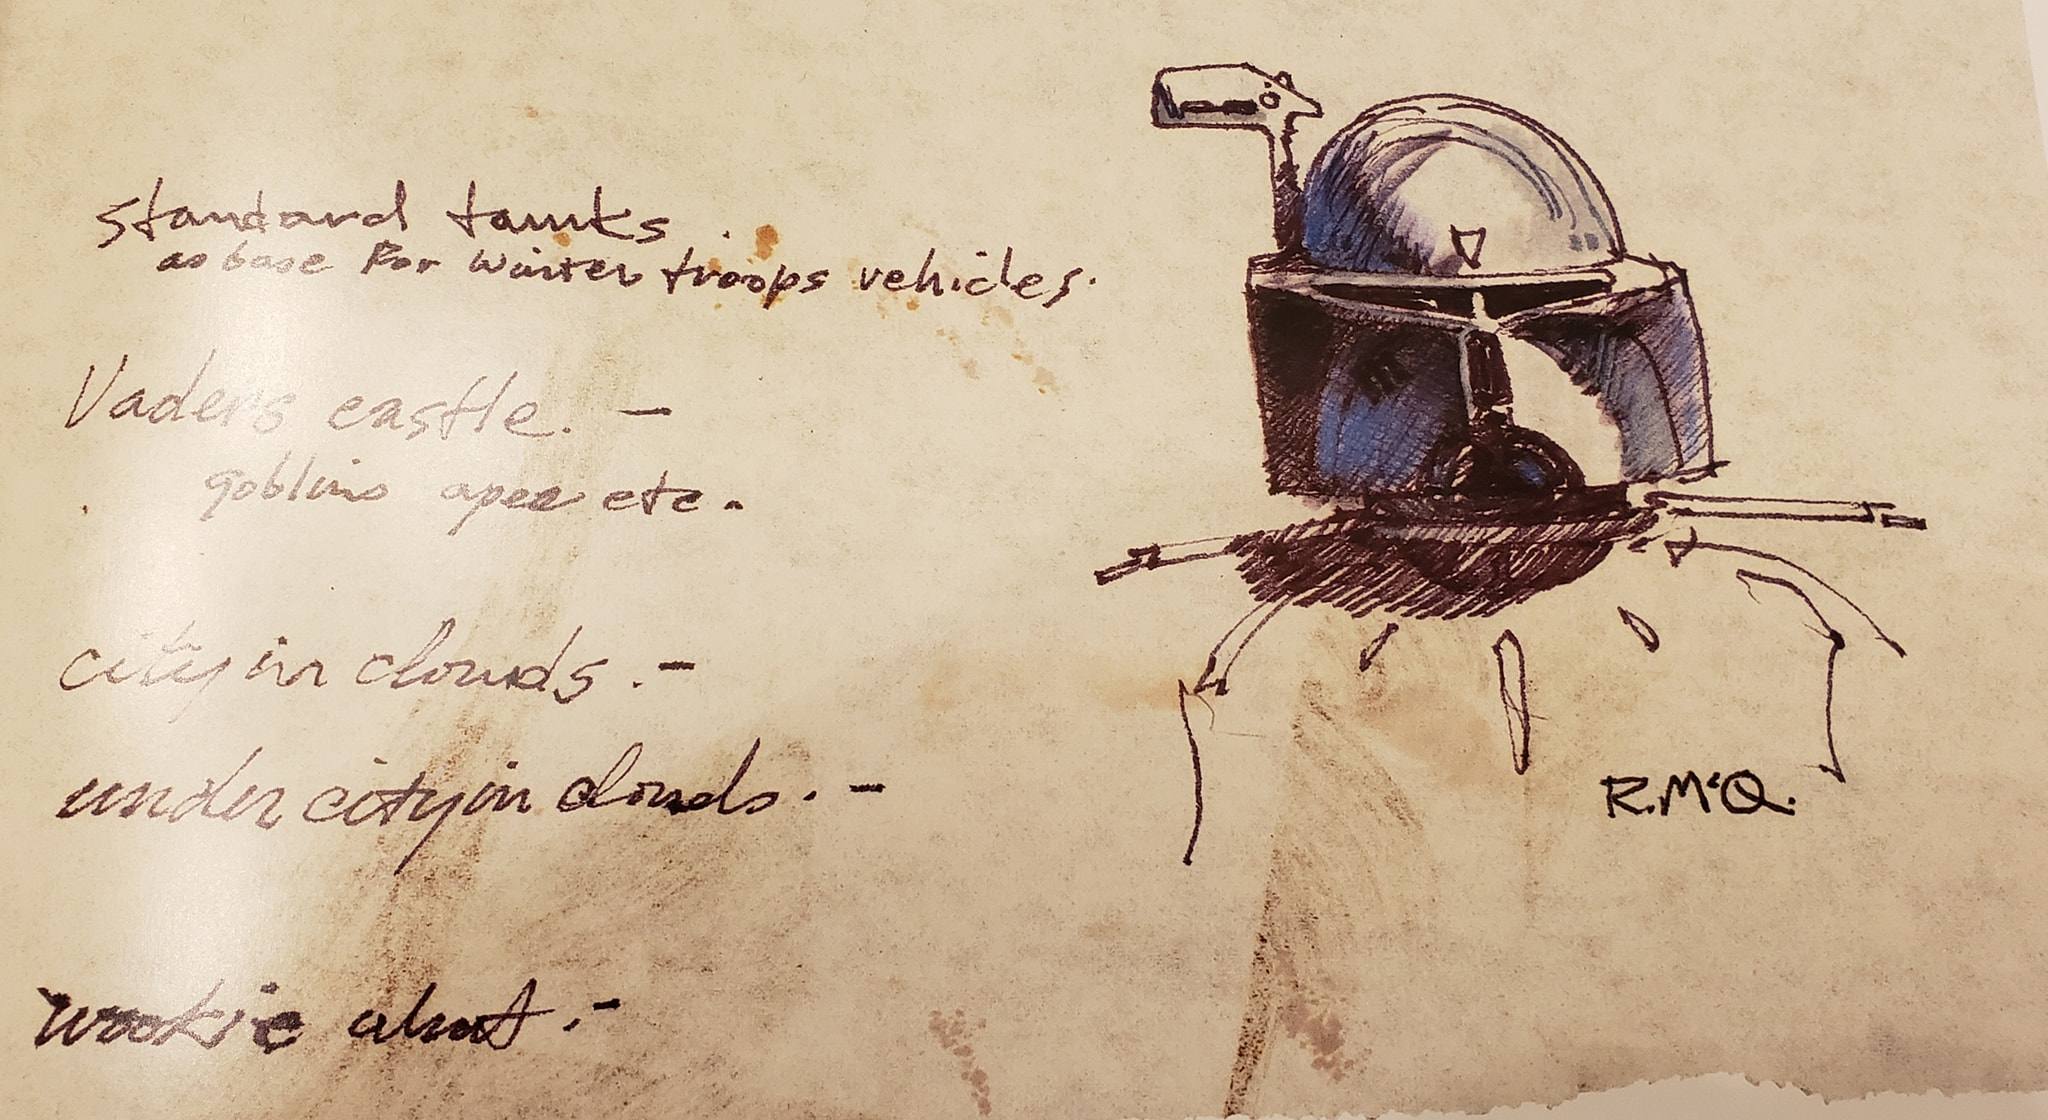 standard tanks
as base for winter troops vehicles.
Vaders castle. -
goblins apes etc.
city in clouds. -
under city in clouds. -
wookie
R.McQ.